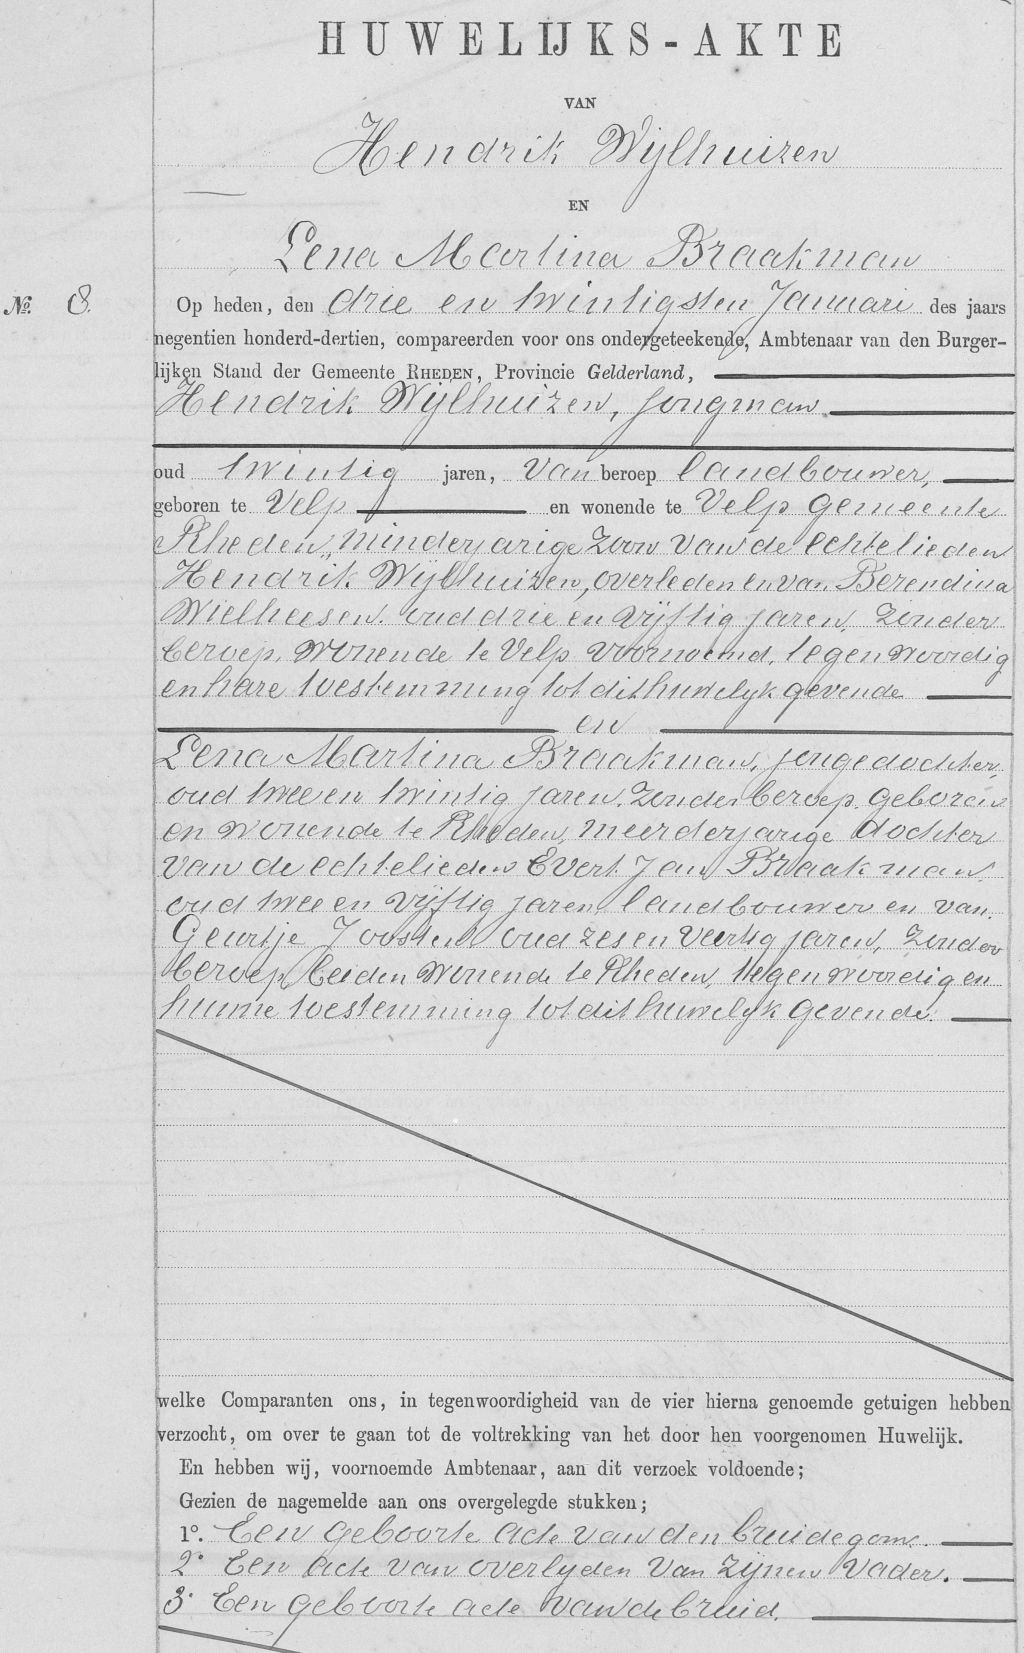 HUWELIJKS-AKTE
VAN
Hendrik Wijlhuizen
EN
Lena Martina Braakman
No. 8. Op heden, den drie en twintigsten Januari des jaars
negentien honderd-dertien, compareerden voor ons ondergeteekende, Ambtenaar van den Burger-
lijken Stand der Gemeente RHEDEN, Provincie Gelderland,
Hendrik Wijlhuizen, jongman
oud twintig jaren, van beroep landbouwer,
geboren te Velp en wonende te Velp gemeente
Rheden, minderjarige zoon van de echtelieden
Hendrik Wijlhuizen, overleden en van Berendina
Wielheesen. oud drie en vijftig jaren, zonder
beroep, wonende te Velp voornoemd, tegenwoordig
en hare toestemming tot dit huwelyk gevende
en
Lena Martina Braakman, jongedochter,
oud twee en twintig jaren, zonder beroep, geboren
en wonende te Rheden, meerderjarige dochter
van de echtelieden Evert Jan Braakman,
oud twee en vijftig jaren landbouwer en van
Geurtje Joosten oud zes en veertig jaren, zonder
beroep, beiden wonende te Rheden, tegenwoordig en
hunne toestemming tot dit huwelyk gevende.
welke Comparanten ons, in tegenwoordigheid van de vier hierna genoemde getuigen hebben
verzocht, om over te gaan tot de voltrekking van het door hen voorgenomen Huwelijk.
En hebben wij, voornoemde Ambtenaar, aan dit verzoek voldoende;
Gezien de nagemelde aan ons overgelegde stukken;
1o. Een geboorte acte van den bruidegom.
2o Een acte van overlyden van zijnen vader.
3o Een geboorte acte van de bruid.